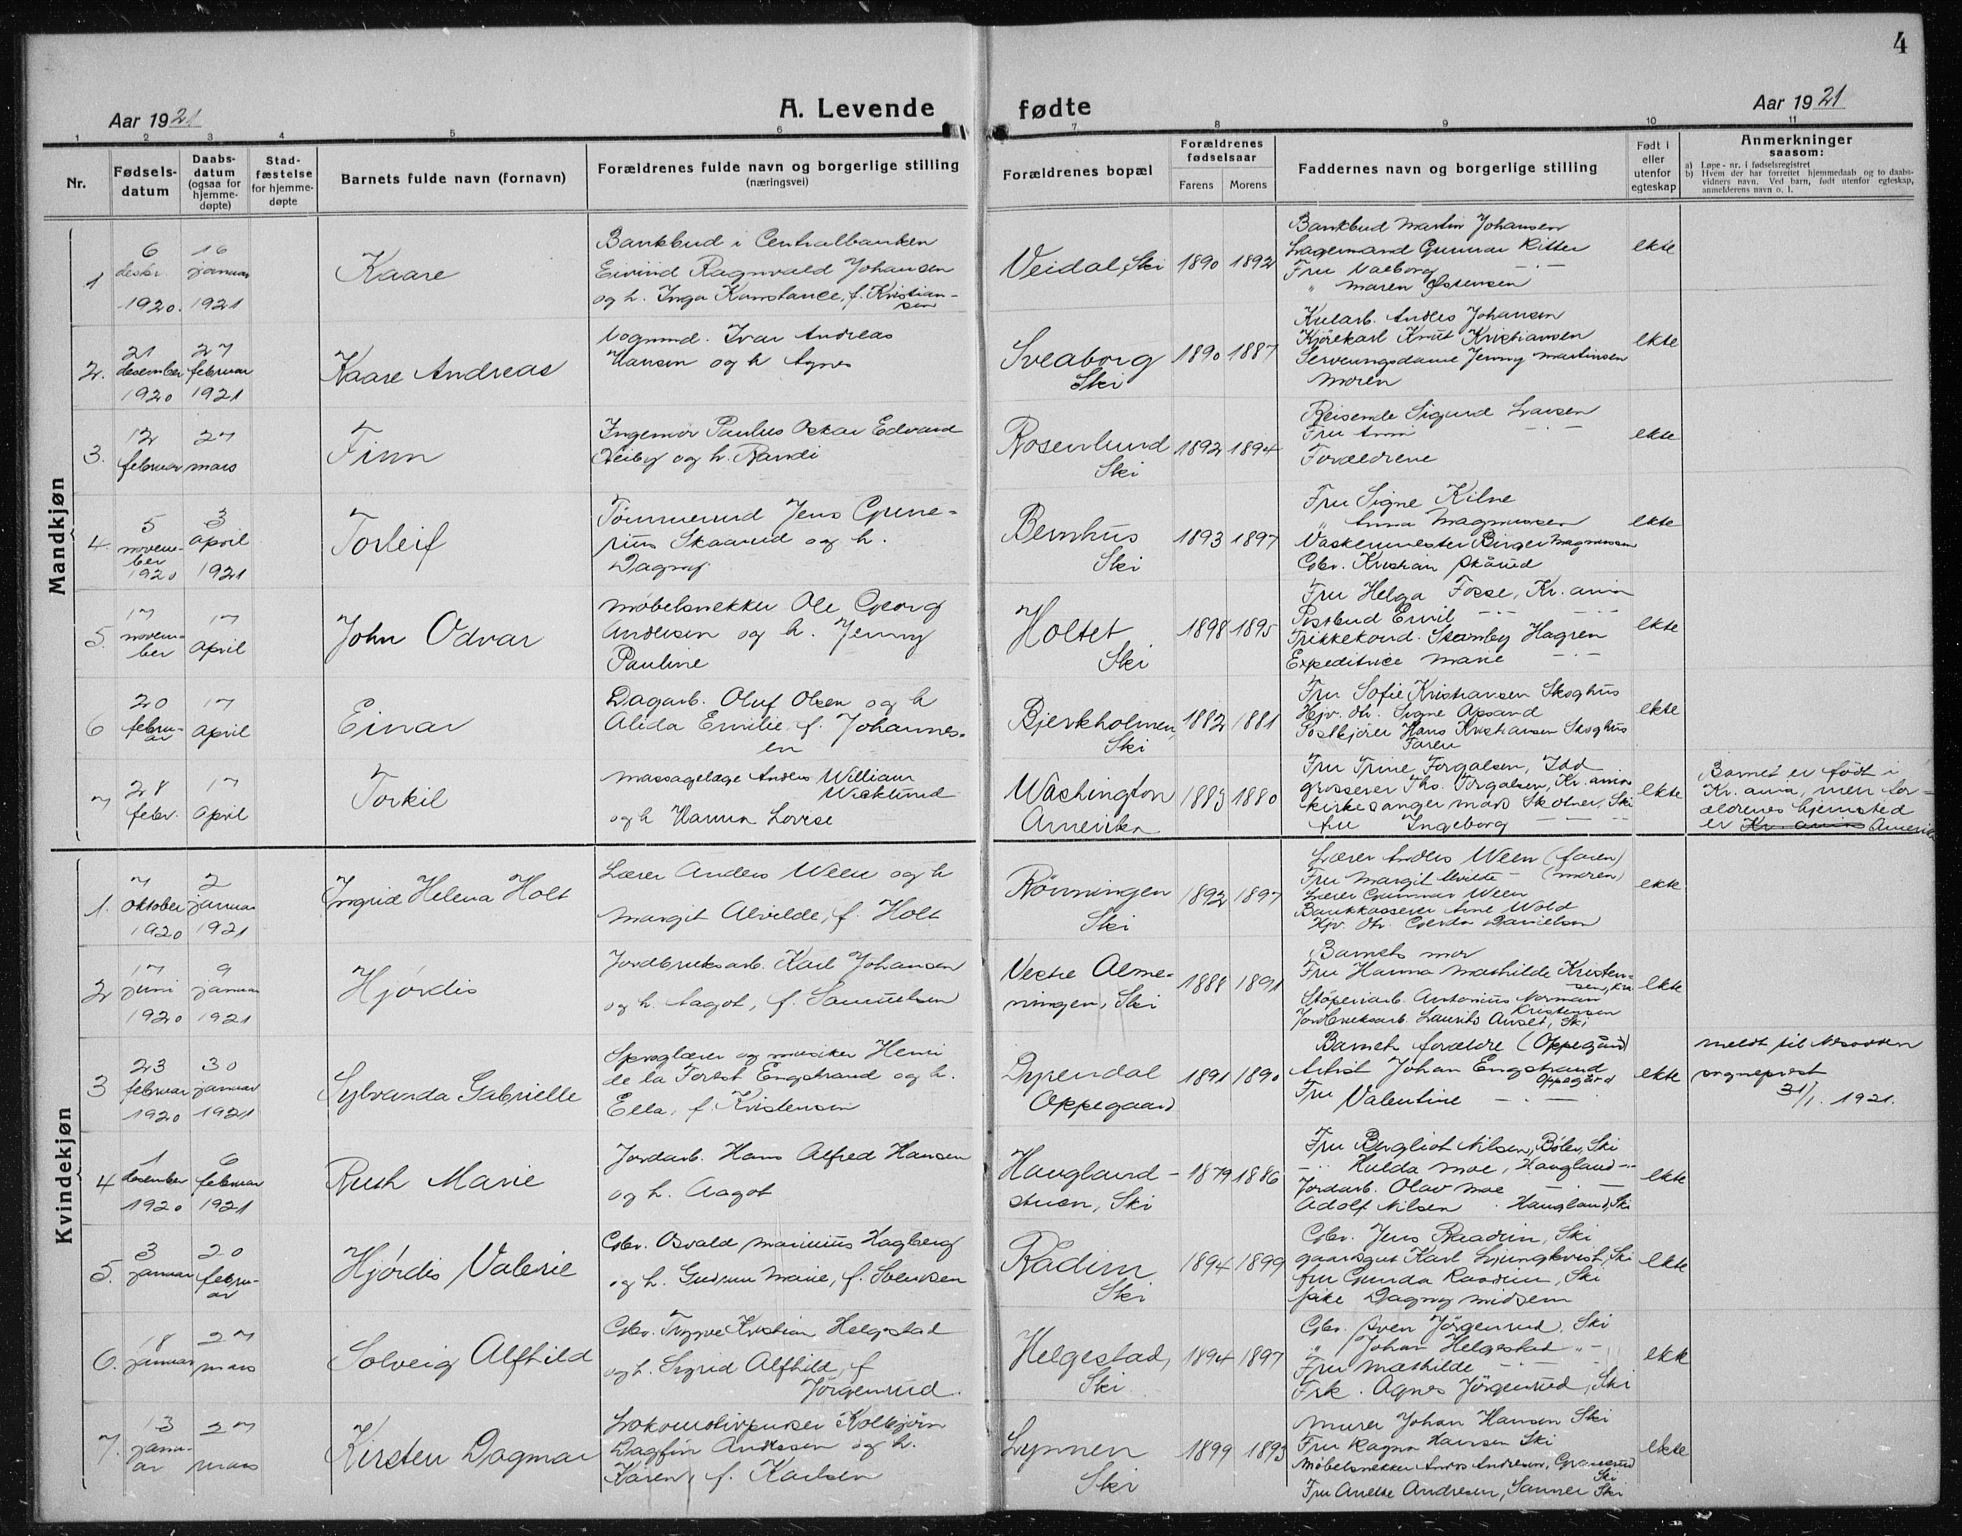 4
Aar 1921
A. Levende
fødte
Aar 1921
1 2 3 4 5 6 7 8 9 10 11
Nr.
Fødsels-
datum
Daabs-
datum
(ogsaa for
hjemme-
døpte)
Stad-
fæstelse
for hjemme-
døpte
Barnets fulde navn (fornavn)
Forældrenes fulde navn og borgerlige stilling
(næringsvei)
Forældrenes bopæl
Forældrenes
fødselsaar
Farens Morens
Faddernes navn og borgerlige stilling
Født i
eller
utenfor
egteskap
Anmerkninger
saasom:
a) Løpe-nr. i fødselsregistret
b) Hvem der har forrettet hjemmedaab og to daabs-
vidners navn. Ved barn, født utenfor egteskap,
anmelderens navn o. l.
Mandkjøn
1
6
deskr.
1920.
16
januar
1921
Kaare
Bankbud i Centralbanken
Eivind Ragnvald Johansen
og h. Inga Konstance, f. Kristian-
sen
Veidal, Ski
1890 1892
Bankbud Martin Johansen
Lagermand Gunnar Ritter
Fru Valborg — · —
" Maren Østensen
ekte
2.
21
desember
1920
27
februar
1921
Kaare Andreas
Vognmd. Ivar Andreas
Hansen og h Agnes
Sveaborg
Ski
1890 1887
Kularb. Anders Johansen
Kjørekarl Knut Kristiansen
Serveringsdame Jenny Martinsen
Moren
ekte
3.
12
februar
27
mars
Finn
Ingeniør Paulus Oskar Edvard
og h. Randi
Rosenlund
Ski
1892 1894
Reisende Sigurd Larsen
Fru Anni — · —
Forældrene
ekte
4.
5
novem-
ber
1920
3
april
1921
Torleif
Tømmermd Jens Grine-
rius Skaarud og h.
Dagny
Bernhus
Ski
1893 1897
Fru Signe Kilne
" Anna Magnussen
Vaskemester Birger Magnussen
Gbr. Kristian Skårud
ekte
5.
17
novem-
ber
17
april
John Odvar
Møbelsnekker Ole Georg
Andersen og h. Jenny
Pauline
Holtet
Ski
1898 1895
Fru Helga Fosse, Kr.ania
Postbud Emil — · — — · —
Trikkekond. Stamby Hagren
Expeditrice Marie — · —
ekte
6
20
febru-
ar
17
april
Einar
Dagarb. Oluf Olsen og h
Alida Emilie, f. Johannes-
en
Bjerkholmen,
Ski
1882 1881
Fru Sofie Kristiansen Skoghus
Hjv. dtr. Signe Apsand
Postkjører Hans Kristiansen Skoghus
Faren
ekte
7
28
febr.
17
april
Torkil
Massagelæge Anders William
Wicklund
og h Hanna Lovise
Washington
Amerika
1883 1880
Fru Trine Torgalsen, Idd
grosserer Ths. Torgalsen, Kr.ania
kirkesanger Mars Skolner, Ski
fru Ingeborg — · —
ekte
Barnet er født i
Kr.ania, men for-
ældrenes hjemsted
er Kr.ania Amerika
Kvindekjøn
1.
7
oktober
1920
2
januar
1921
Ingrid Helena Holt
Lærer Anders Ween og h
Margit Alvilde, f. Holt
Rønningen
Ski
1892 1897
Lærer Anders Ween (faren)
Fru Margit Alvilde — (moren)
Lærer Gunnar Ween
Bankkasserer Arne Wold
Hjv. dtr. Gerda Danielsen
ekte
2
17
juni
1920
9
januar
1921
Hjørdis
Jordbruksarb. Karl Johansen
og h. Aagot, f. Samuelsen
Vestre Alme-
ningen, Ski
1888 1891
Barnets mor
Fru Hanna Mathilde Kristen-
sen, Kra
Støperiarb. Antonius Norman
Kristensen
Jordbruksarb. Laurits Anset, Ski
ekte
3
23
februar
1920
30
januar
1921
Sylvanda Gabrielle
Sproglærer og musiker Henri
de la Forest Engstrand og h.
Ella, f. Kristensen
Dyrendal
Oppegaard
1891 1890
Barnets forældre (Oppegård)
Artist Johan Engstrand
Oppegård
Fru Valentine — · —
ekte
Meldt til Nesodden
sogneprest
31/1. 1921.
4
1
desember
1920
6
februar
1921
Ruth Marie
Jordarb. Hans Alfred Hansen
og h. Aagot
Haugland-
stuen, Ski
1879 1886
Fru Bergliot Nilsen, Bøler, Ski
— · — Hulda Moe, Haugland — · —
Jordarb. Olav Moe — · —
Adolf Nilsen Haugland, Ski
ekte
5.
3
januar
20
febru-
ar
Hjørdis Valerie
Gbr. Osvald Marinius Hagberg
og h. Gudrun Marie, f. Svensen
Rådim
Ski
1894 1899
Gbr. Jens Raadim, Ski
gaardsgut Karl Ljungkvist, Ski
fru Gunda Raadim, Ski
pike Dagny Midsem
ekte
6.
18
januar
27
mars
Solveig Alfhild
Gbr. Trygve Kristian Helgestad
og h. Sigrid Alfhild, f
Jørgenrud.
Helgestad,
Ski
1894 1897
Gbr. Sven Jørgenrud, Ski
" Johan Helgestad — " —
Fru Mathilde — · — — · —
Frk. Agnes Jørgenrud, Ski
ekk
7.
13
janu-
ar
27
mars
Kirsten Dagmar
Lokomotivpusser Kolbjørn
Dagfin Andersen og h.
Karen, f. Karlsen
Lynnen
Ski
1899 1893
Murer Johan Hansen Ski
Fru Ragna Hansen Ski
Møbelsnekker Anders Andresen, Granerud
Ski
Fru Anette Andresen, Sanner Ski
ekte